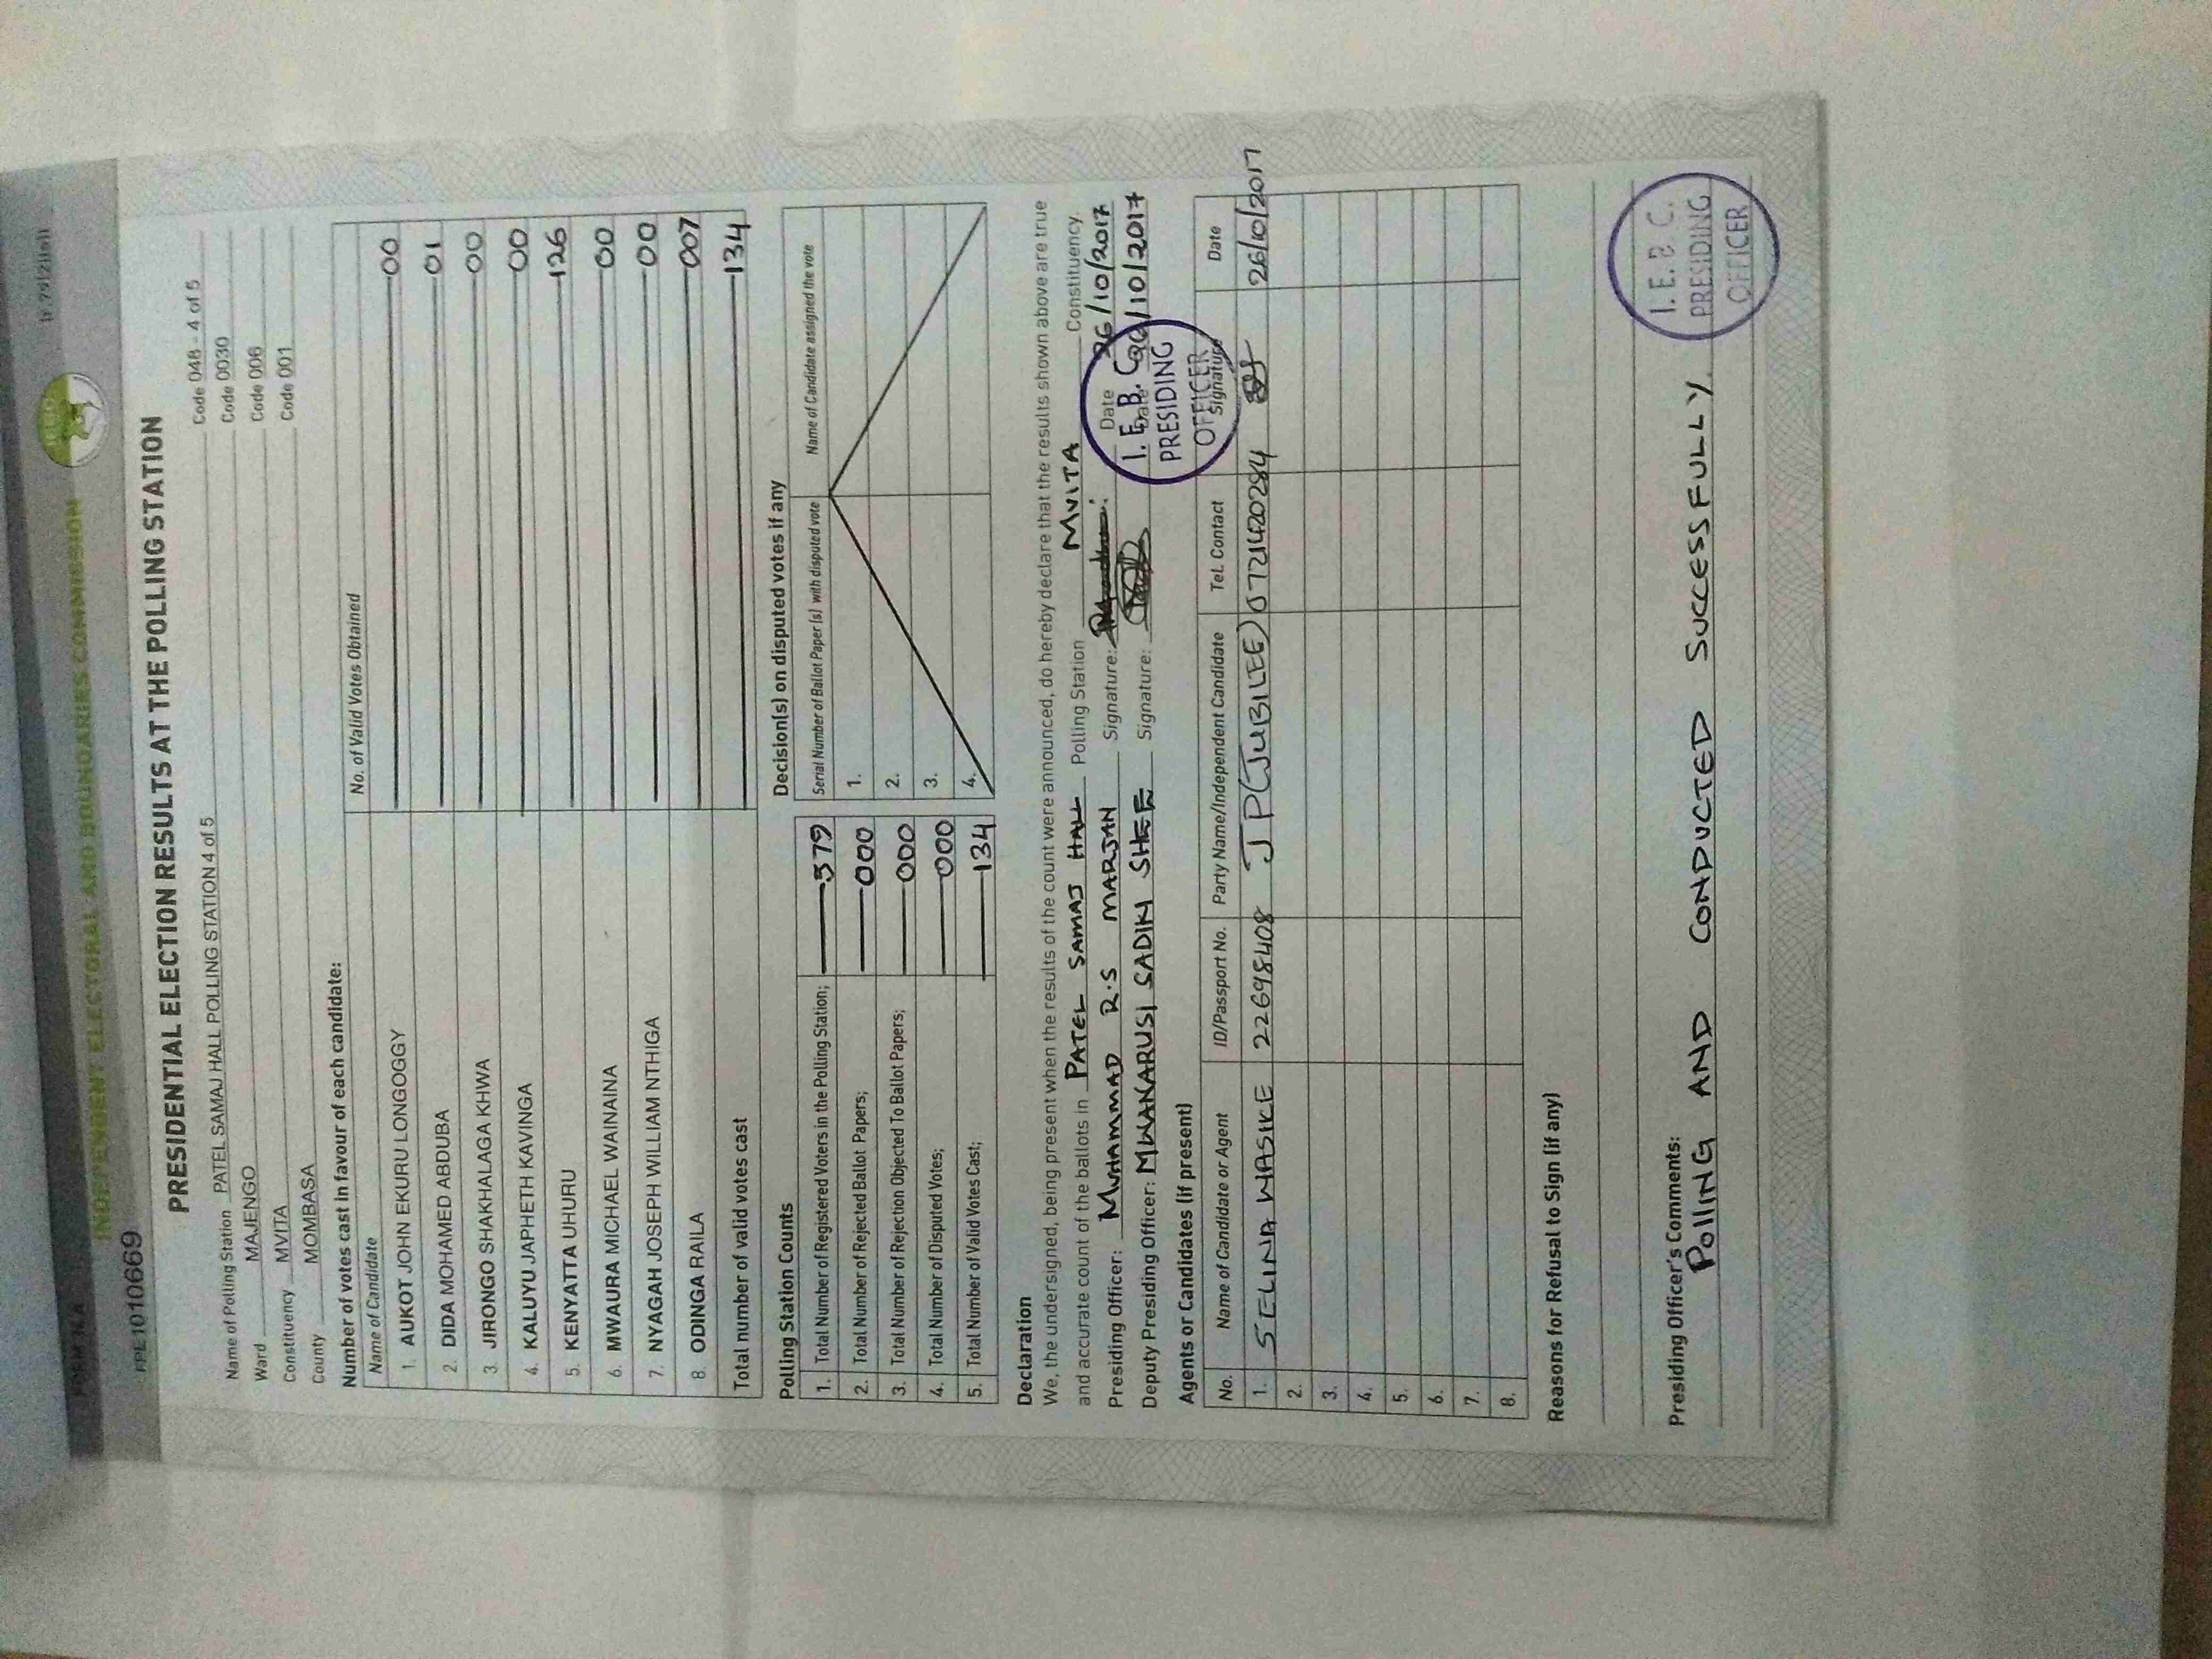 INDEPENDENT ELECTORAL AND BOUNDARIES COMMISSION
PRESIDENTIAL ELECTION RESULTS AT THE POLLING STATION
Name of Polling Station PATEL SAMAJ HALL POLLING STATION 4 of 5 Code 048 - 4 of 5
Ward MAJENGO Code 0030
Constituency MVITA Code 006
County MOMBASA Code 001
Number of votes cast in favour of each candidate:
Name of Candidate No. of Valid Votes Obtained
1. AUKOT JOHN EKURU LONGOGGY 00
2. DIDA MOHAMED ABDUBA 01
3. JIRONGO SHAKHALAGA KHWA 00
4. KALUYU JAPHETH KAVINGA 00
5. KENYATTA UHURU 126
6. MWAURA MICHAEL WAINAINA 00
7. NYAGAH JOSEPH WILLIAM NTHIGA 00
8. ODINGA RAILA 007
Total number of valid votes cast 134
Polling Station Counts
1. Total Number of Registered Voters in the Polling Station; 379
2. Total Number of Rejected Ballot Papers; 000
3. Total Number of Rejection Objected To Ballot Papers; 000
4. Total Number of Disputed Votes; 000
5. Total Number of Valid Votes Cast; 134
Decision(s) on disputed votes if any
Serial Number of Ballot Paper (s) with disputed vote Name of Candidate assigned the vote
1.
2.
3.
4.
Declaration
We, the undersigned, being present when the results of the count were announced, do hereby declare that the results shown above are true
and accurate count of the ballots in PATEL SAMAJ HALL Polling Station MVITA Constituency.
Presiding Officer: MUHAMMAD R.S MARJAN Signature: Date 26/10/2017
Deputy Presiding Officer: MWANARUSI SADIK SHEE Signature: Date 26/10/2017
I. E. B. C.
PRESIDING
OFFICER
Agents or Candidates (if present)
No. Name of Candidate or Agent ID/Passport No. Party Name/Independent Candidate Tel. Contact Signature Date
1. SELINA WASIKE 22698408 JP(JUBILEE) 0721420284 26/10/2017
2.
3.
4.
5.
6.
7.
8.
Reasons for Refusal to Sign (if any)
Presiding Officer's Comments:
POLLING AND CONDUCTED SUCCESSFULLY.
I. E. B. C.
PRESIDING
OFFICER